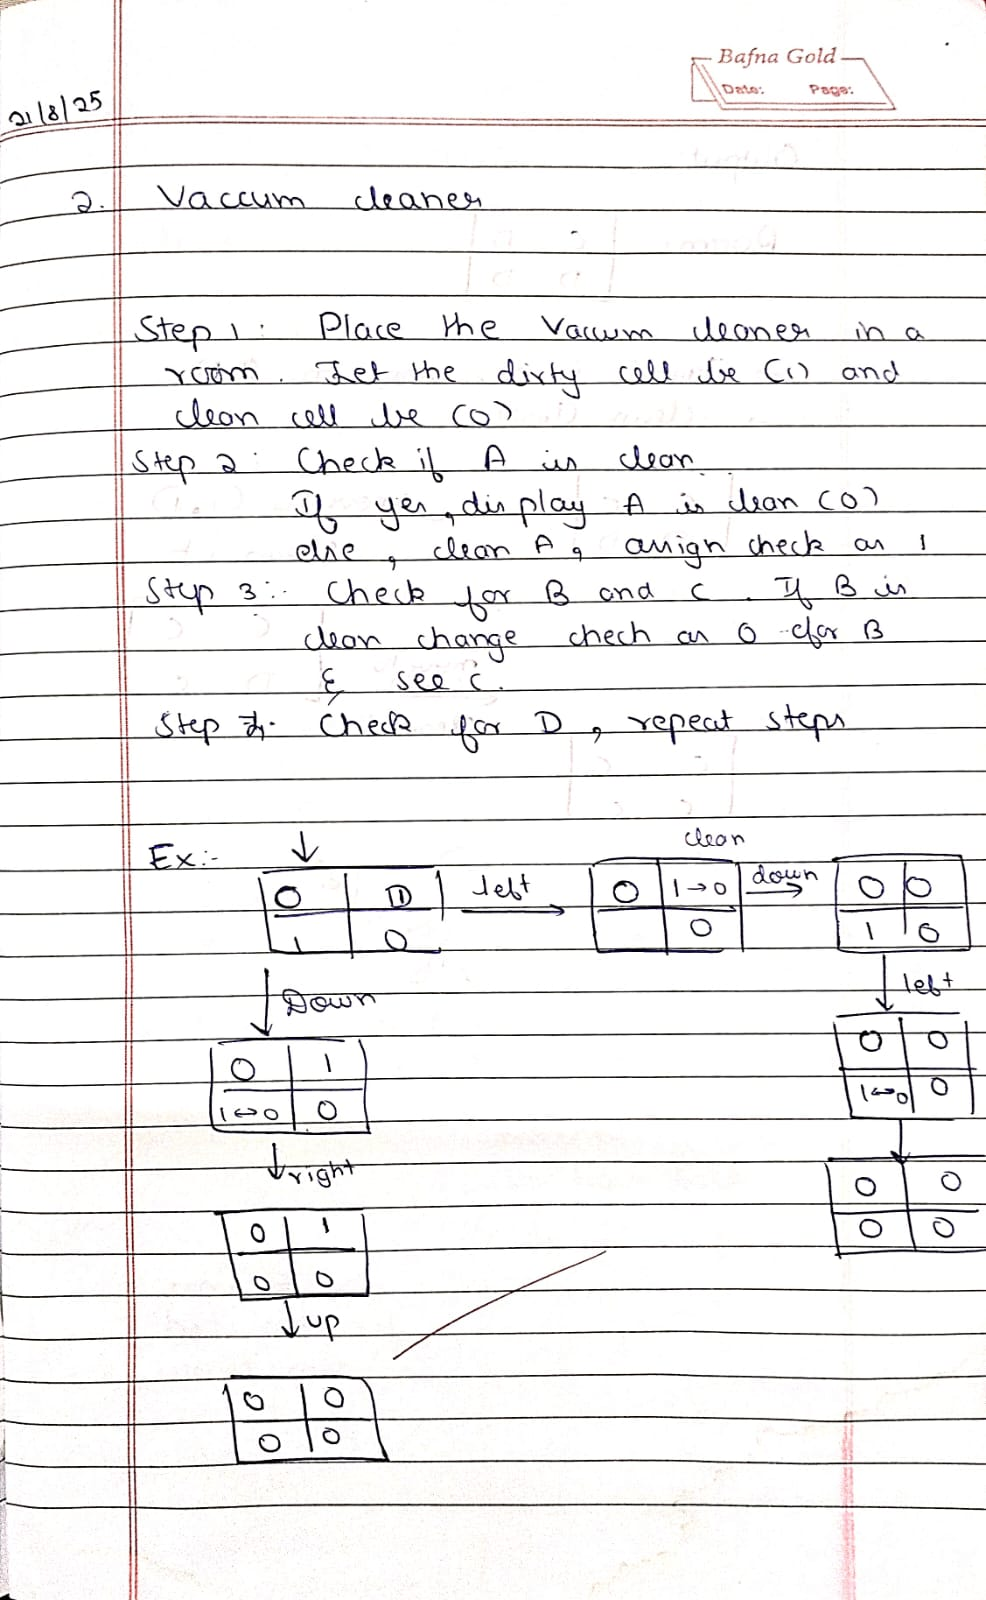 Bafna Gold
Date: Page:
21/8/25
2. Vaccum cleaner
Step 1: Place the Vaccum cleaner in a
room. Let the dirty cell be (1) and
clean cell be (0)
Step 2: Check if A is clean.
If yes, display A is clean (0)
else, clean A, assign check as 1
Step 3:- Check for B and C. If B is
clean change chech as 0 for B
& see C.
Step 4:- Check for D, repeat steps
Ex:- ↓
clean
0 1 left → 0 1→0 down → 0 0
1 0 0 1 0
↓ Down ↓ left
0 1 0 0
1↔0 0 1↔0 0
↓ right ↓
0 1 0 0
0 0 0 0
↓ up
0 0
0 0